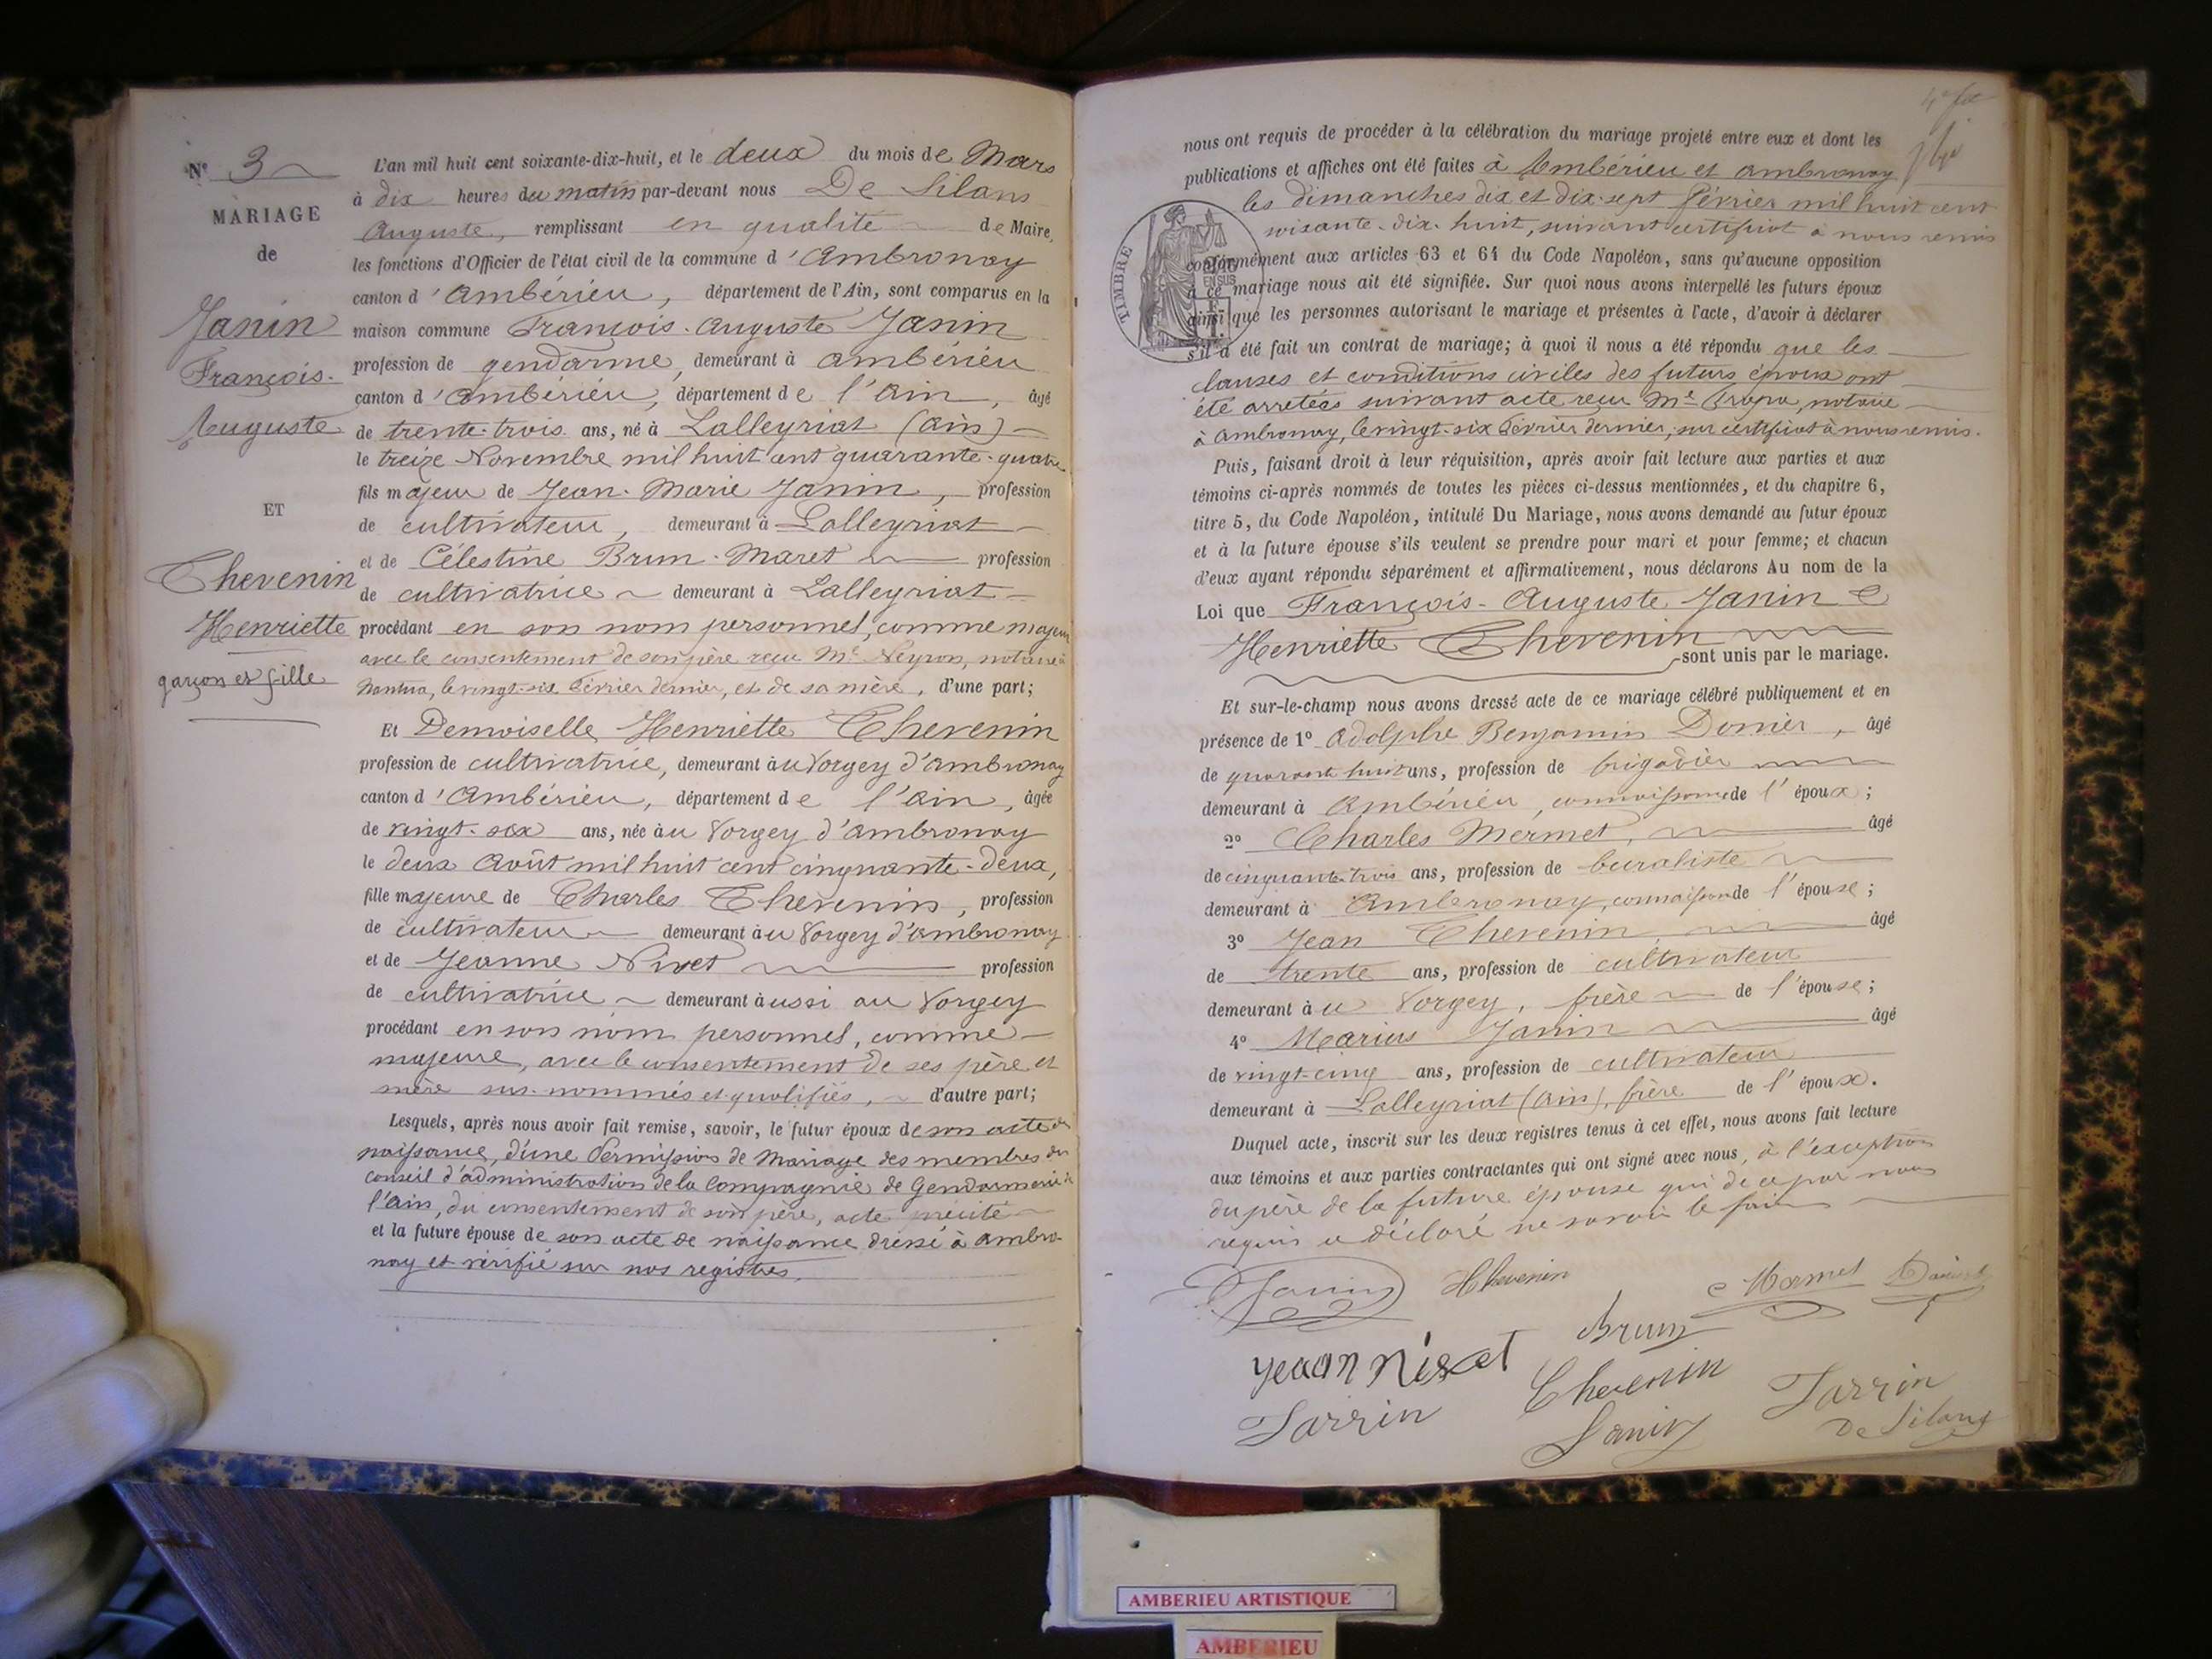 Nº 3
MARIAGE
de
Janin
François-
Auguste
ET
Thevenin
Henriette
garçon et fille
L'an mil huit cent soixante-dix-huit, et le deux du mois de Mars
à dix heures du matin par-devant nous De Silans
Auguste, remplissant en qualité de Maire,
les fonctions d'Officier de l'état civil de la commune d'Ambronay
canton d'Ambérieu, département de l'Ain, sont comparus en la
maison commune François-Auguste Janin
profession de gendarme, demeurant à Ambérieu
canton d'Ambérieu, département de l'Ain, âgé
de trente-trois ans, né à Lalleyriat (Ain)
le treize Novembre mil huit cent quarante-quatre
fils majeur de Jean-Marie Janin, profession
de cultivateur, demeurant à Lalleyriat
et de Célestine Brun-Maret profession
de cultivatrice demeurant à Lalleyriat
procédant en son nom personnel, comme majeur
avec le consentement de son père reçu Me Neyron, notaire à
Nantua, le vingt-six Février dernier, et de sa mère, d'une part;
Et Demoiselle Henriette Thevenin
profession de cultivatrice, demeurant au Vorgey d'Ambronay
canton d'Ambérieu, département de l'Ain, âgée
de vingt-six ans, née au Vorgey d'Ambronay
le deux Août mil huit cent cinquante-deux,
fille majeure de Charles Thevenin, profession
de cultivateur demeurant au Vorgey d'Ambronay
et de Jeanne Nivet profession
de cultivatrice demeurant aussi au Vorgey
procédant en son nom personnel, comme
majeure, avec le consentement de ses père et
mère sus-nommés et qualifiés, d'autre part;
Lesquels, après nous avoir fait remise, savoir, le futur époux de son acte de
naissance, d'une Permission de Mariage des membres du
Conseil d'administration de la Compagnie de Gendarmerie de
l'Ain, du consentement de son père, acte précité
et la future épouse de son acte de naissance dressé à Ambro-
nay et vérifié sur nos registres.
nous ont requis de procéder à la célébration du mariage projeté entre eux et dont les
publications et affiches ont été faites à Ambérieu et Ambronay
les dimanches dix et dix-sept Février mil huit cent
soixante-dix-huit, suivant certificat à nous remis
TIMBRE
conformément aux articles 63 et 64 du Code Napoléon, sans qu'aucune opposition
EN SUS
à ce mariage nous ait été signifiée. Sur quoi nous avons interpellé les futurs époux
ainsi que les personnes autorisant le mariage et présentes à l'acte, d'avoir à déclarer
s'il a été fait un contrat de mariage; à quoi il nous a été répondu que les
clauses et conditions civiles des futurs époux ont
été arretées suivant acte reçu Me notaire
à Ambronay, le vingt-six Février dernier, sur certificat à nous remis.
Puis, faisant droit à leur réquisition, après avoir fait lecture aux parties et aux
témoins ci-après nommés de toutes les pièces ci-dessus mentionnées, et du chapitre 6,
titre 5, du Code Napoléon, intitulé Du Mariage, nous avons demandé au futur époux
et à la future épouse s'ils veulent se prendre pour mari et pour femme; et chacun
d'eux ayant répondu séparément et affirmativement, nous déclarons Au nom de la
Loi que François-Auguste Janin &
Henriette Thevenin
sont unis par le mariage.
Et sur-le-champ nous avons dressé acte de ce mariage célébré publiquement et en
présence de 1º Adolphe Benjamin Donier, âgé
de quarante huit ans, profession de brigadier
demeurant à Ambérieu, connaissance de l'époux;
2º Charles Mermet, âgé
de cinquante-trois ans, profession de buraliste
demeurant à Ambronay, connaissance de l'épouse;
3º Jean Thevenin, âgé
de trente ans, profession de cultivateur
demeurant au Vorgey, frère de l'épouse;
4º Marius Janin âgé
de vingt-cinq ans, profession de cultivateur
demeurant à Lalleyriat (Ain), frère de l'époux.
Duquel acte, inscrit sur les deux registres tenus à cet effet, nous avons fait lecture
aux témoins et aux parties contractantes qui ont signé avec nous, à l'exception
du père de la future épouse qui de ce par nous
requis a déclaré ne savoir le faire
Janin Hthevenin Mermet
Brun
Thevenin
Janin
De Silans
AMBERIEU ARTISTIQUE
AMBERIEU